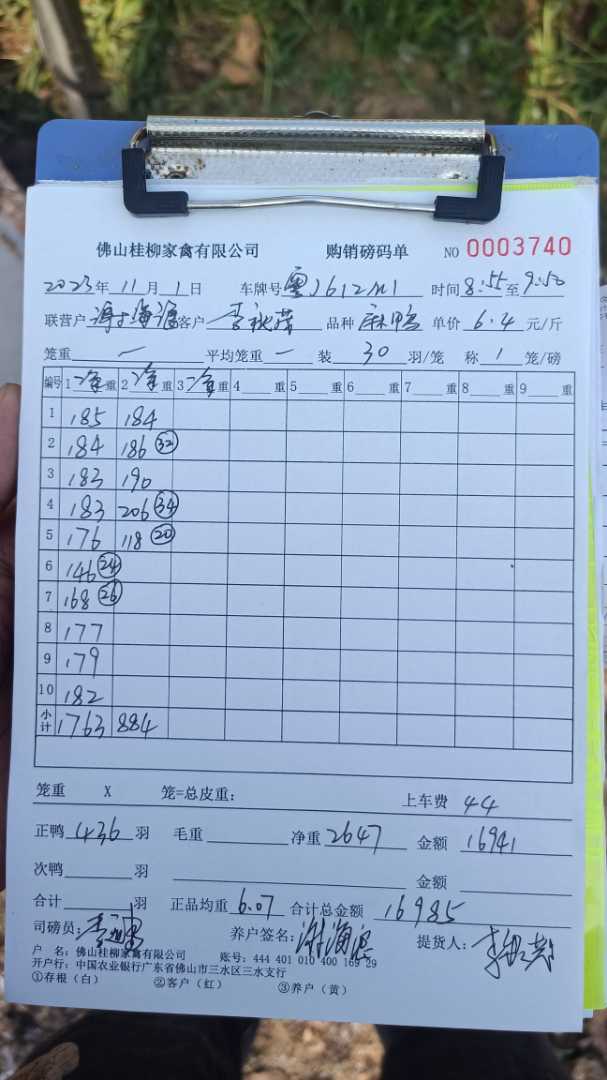 佛山桂柳家禽有限公司 购销磅码单 NO 0003740
2023年 11月 1日 车牌号 粤J612M1 时间 8:55至9:50
联营户 客户 李 品种 麻鸭 单价 6.4 元/斤
笼重 一 平均笼重 一 装 30 羽/笼 称 1 笼/磅
编号 1净重 2净重 3净重 4 重 5 重 6 重 7 重 8 重 9 重
1 185 184
2 184 186 32
3 183 190
4 183 206 34
5 176 118 20
6 146 24
7 168 26
8 177
9 179
10 182
小计 1763 884
笼重 X 笼=总皮重: 上车费 44
正鸭 436 羽 毛重 净重 2647 金额 16941
次鸭 羽 金额
合计 羽 正品均重 6.07 合计总金额 16985
司磅员: 养户签名: 提货人:
户 名: 佛山桂柳家禽有限公司 账号: 444 401 010 400 169 29
开户行: 中国农业银行广东省佛山市三水区三水支行
①存根(白) ②客户(红) ③养户(黄)